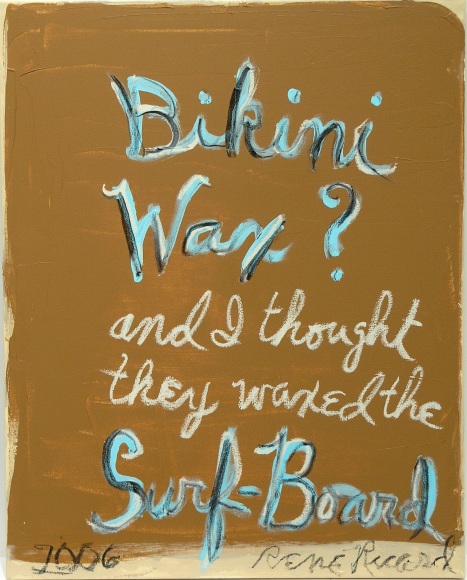 Bikini
Wax?
and I thought
they waxed the
Surf-Board
2006 Rene Ricard